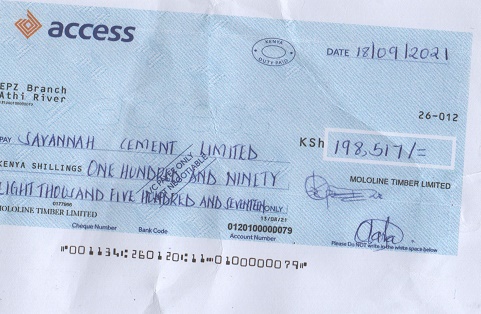 access
KENYA
DUTY PAID
DATE 18/09/2021
EPZ Branch
Athi River
26-012
PAY SAVANNAH CEMENT LIMITED
KSh 198,517/=
A/C PAYEE ONLY
NOT NEGOTIABLE
KENYA SHILLINGS ONE HUNDRED AND NINETY
EIGHT THOUSAND FIVE HUNDRED AND SEVENTEEN ONLY
MOLOLINE TIMBER LIMITED
MOLOLINE TIMBER LIMITED
13/08/21
Cheque Number Bank Code
0120100000079
Account Number
Please Do NOT write in the white space below
"001134: 26012011" 0100000079"